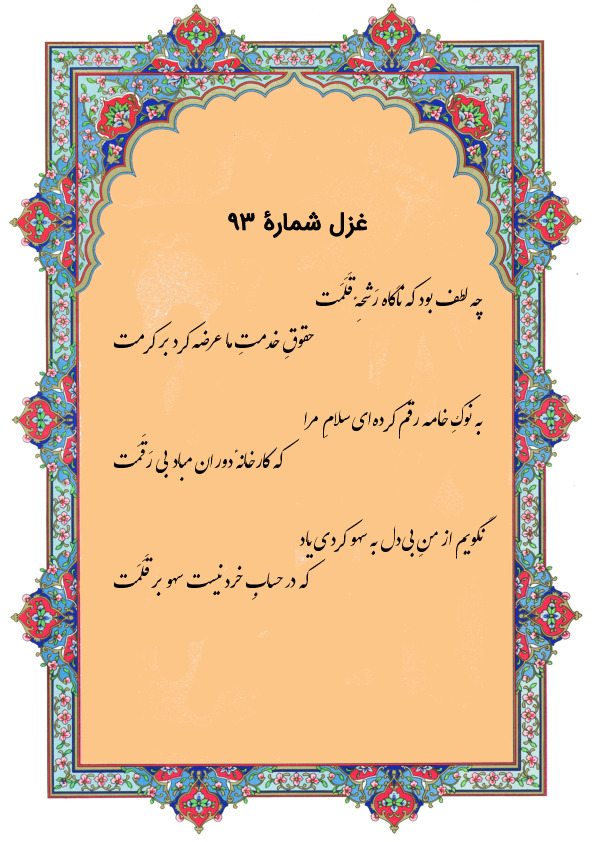 غزل شمارهٔ ۹۳
چه لطف بود که ناگاه رَشحِهٔ قَلَمَت
حقوقِ خدمتِ ما عرضه کرد بر کرمت
به نوکِ خامه رقم کرده‌ای سلامِ مرا
که کارخانهٔ دوران مباد بی رَقَمت
نگویم از منِ بی‌دل به سهو کردی یاد
که در حسابِ خرد نیست سهو بر قلَمَت